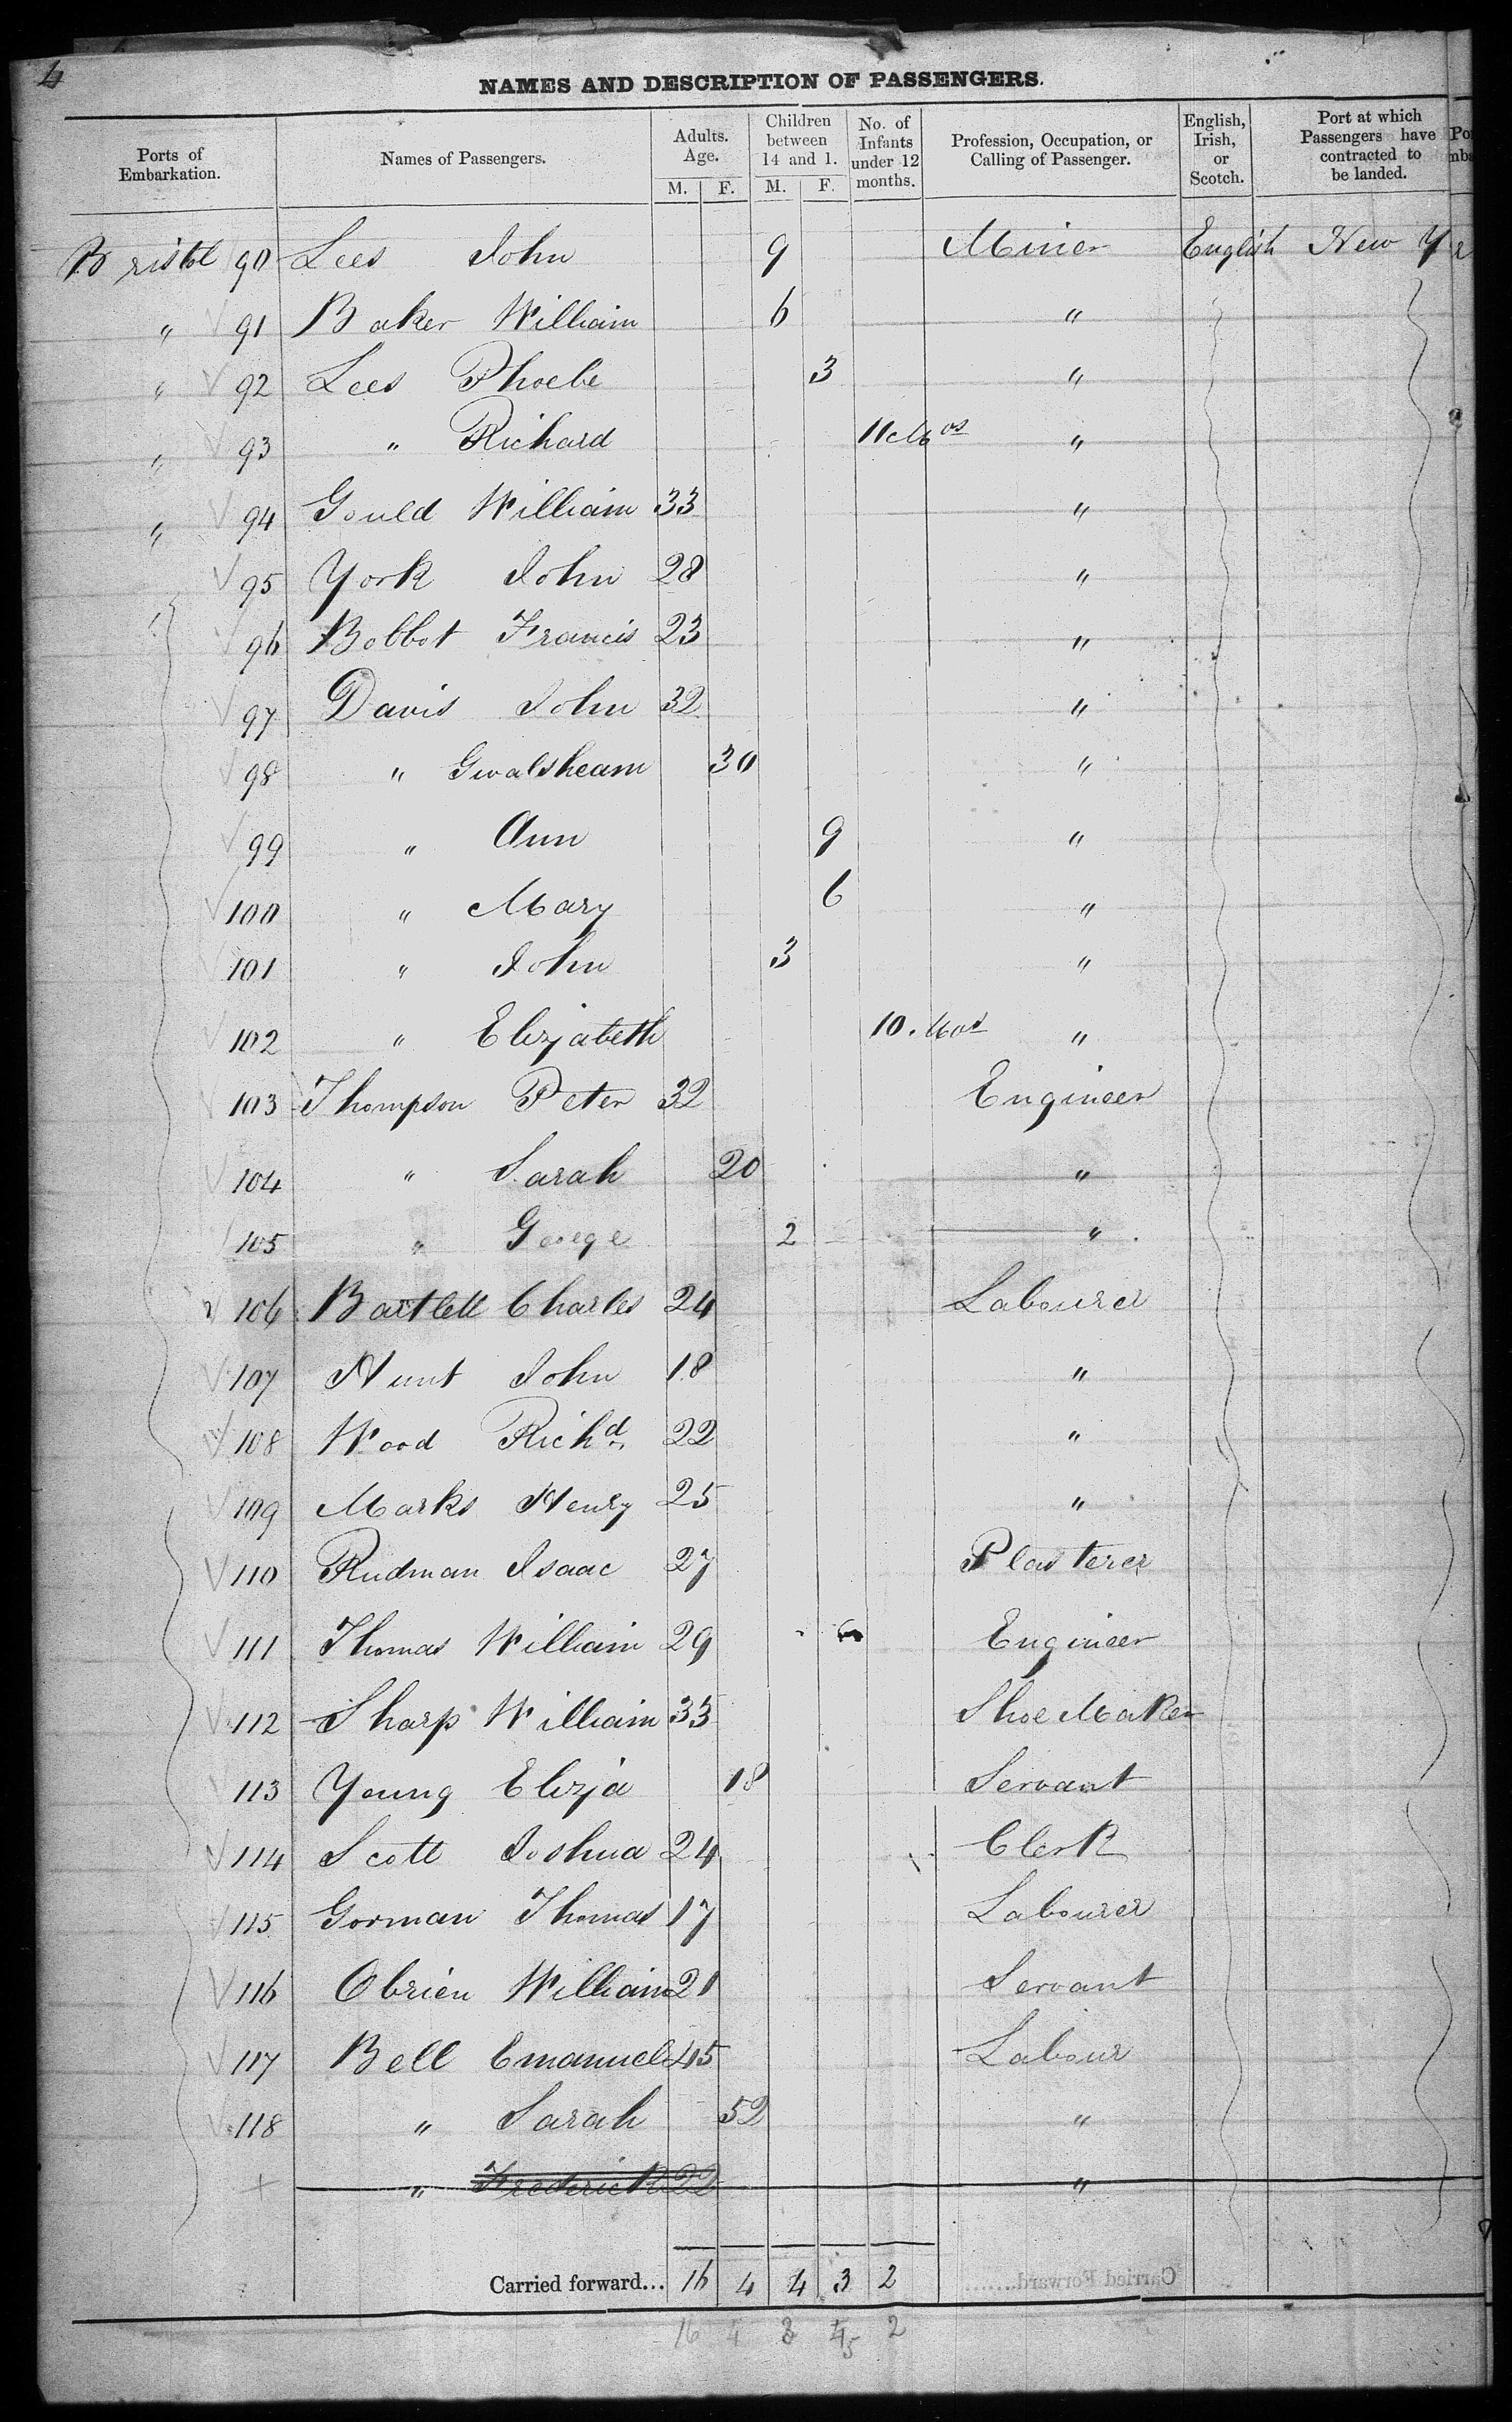 4
NAMES AND DESCRIPTION OF PASSENGERS.
Ports of Embarkation. Names of Passengers. Adults. Age. M. F. Children between 14 and 1. M. F. No. of Infants under 12 months. Profession, Occupation, or Calling of Passenger. English, Irish, or Scotch. Port at which Passengers have contracted to be landed.
Bristol 90 Lees John 9 Miner English New Y
" 91 Baker William 6 "
" 92 Lees Phoebe 3 "
" 93 " Richard 11 Mos "
" 94 Gould William 33 "
95 York John 28 "
96 Bobbot Francis 23 "
97 Davis John 32 "
98 " Gwalsheam 30 "
99 " Ann 9 "
100 " Mary 6 "
101 " John 3 "
102 " Elizabeth 10. Mos "
103 Thompson Peter 32 Engineer
104 " Sarah 20 "
105 " George 2 "
106 Bartlett Charles 24 Labourer
107 Hunt John 18 "
108 Wood Richd. 22 "
109 Marks Henry 25 "
110 Rudman Isaac 27 Plasterer
111 Thomas William 29 Engineer
112 Sharp William 33 Shoe Maker
113 Young Eliza 18 Servant
114 Scott Joshua 24 Clerk
115 Gorman Thomas 17 Labourer
116 Obrien William 21 Servant
117 Bell Emanuel 45 Labour
118 " Sarah 52 "
" Frederick 22 "
Carried forward... 16 4 4 3 2
16 4 3 4 5 2